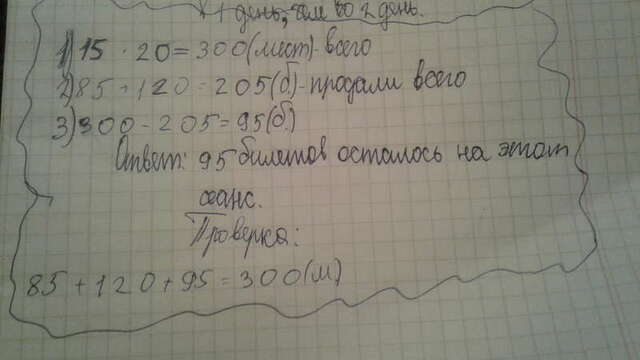 1 день, чем во 2 день.
1) 15 · 20 = 300 (мест) - всего
2) 85 + 120 = 205 (б.) - продали всего
3) 300 - 205 = 95 (б.)
Ответ: 95 билетов осталось на этот
сеанс.
Проверка:
85 + 120 + 95 = 300 (м)